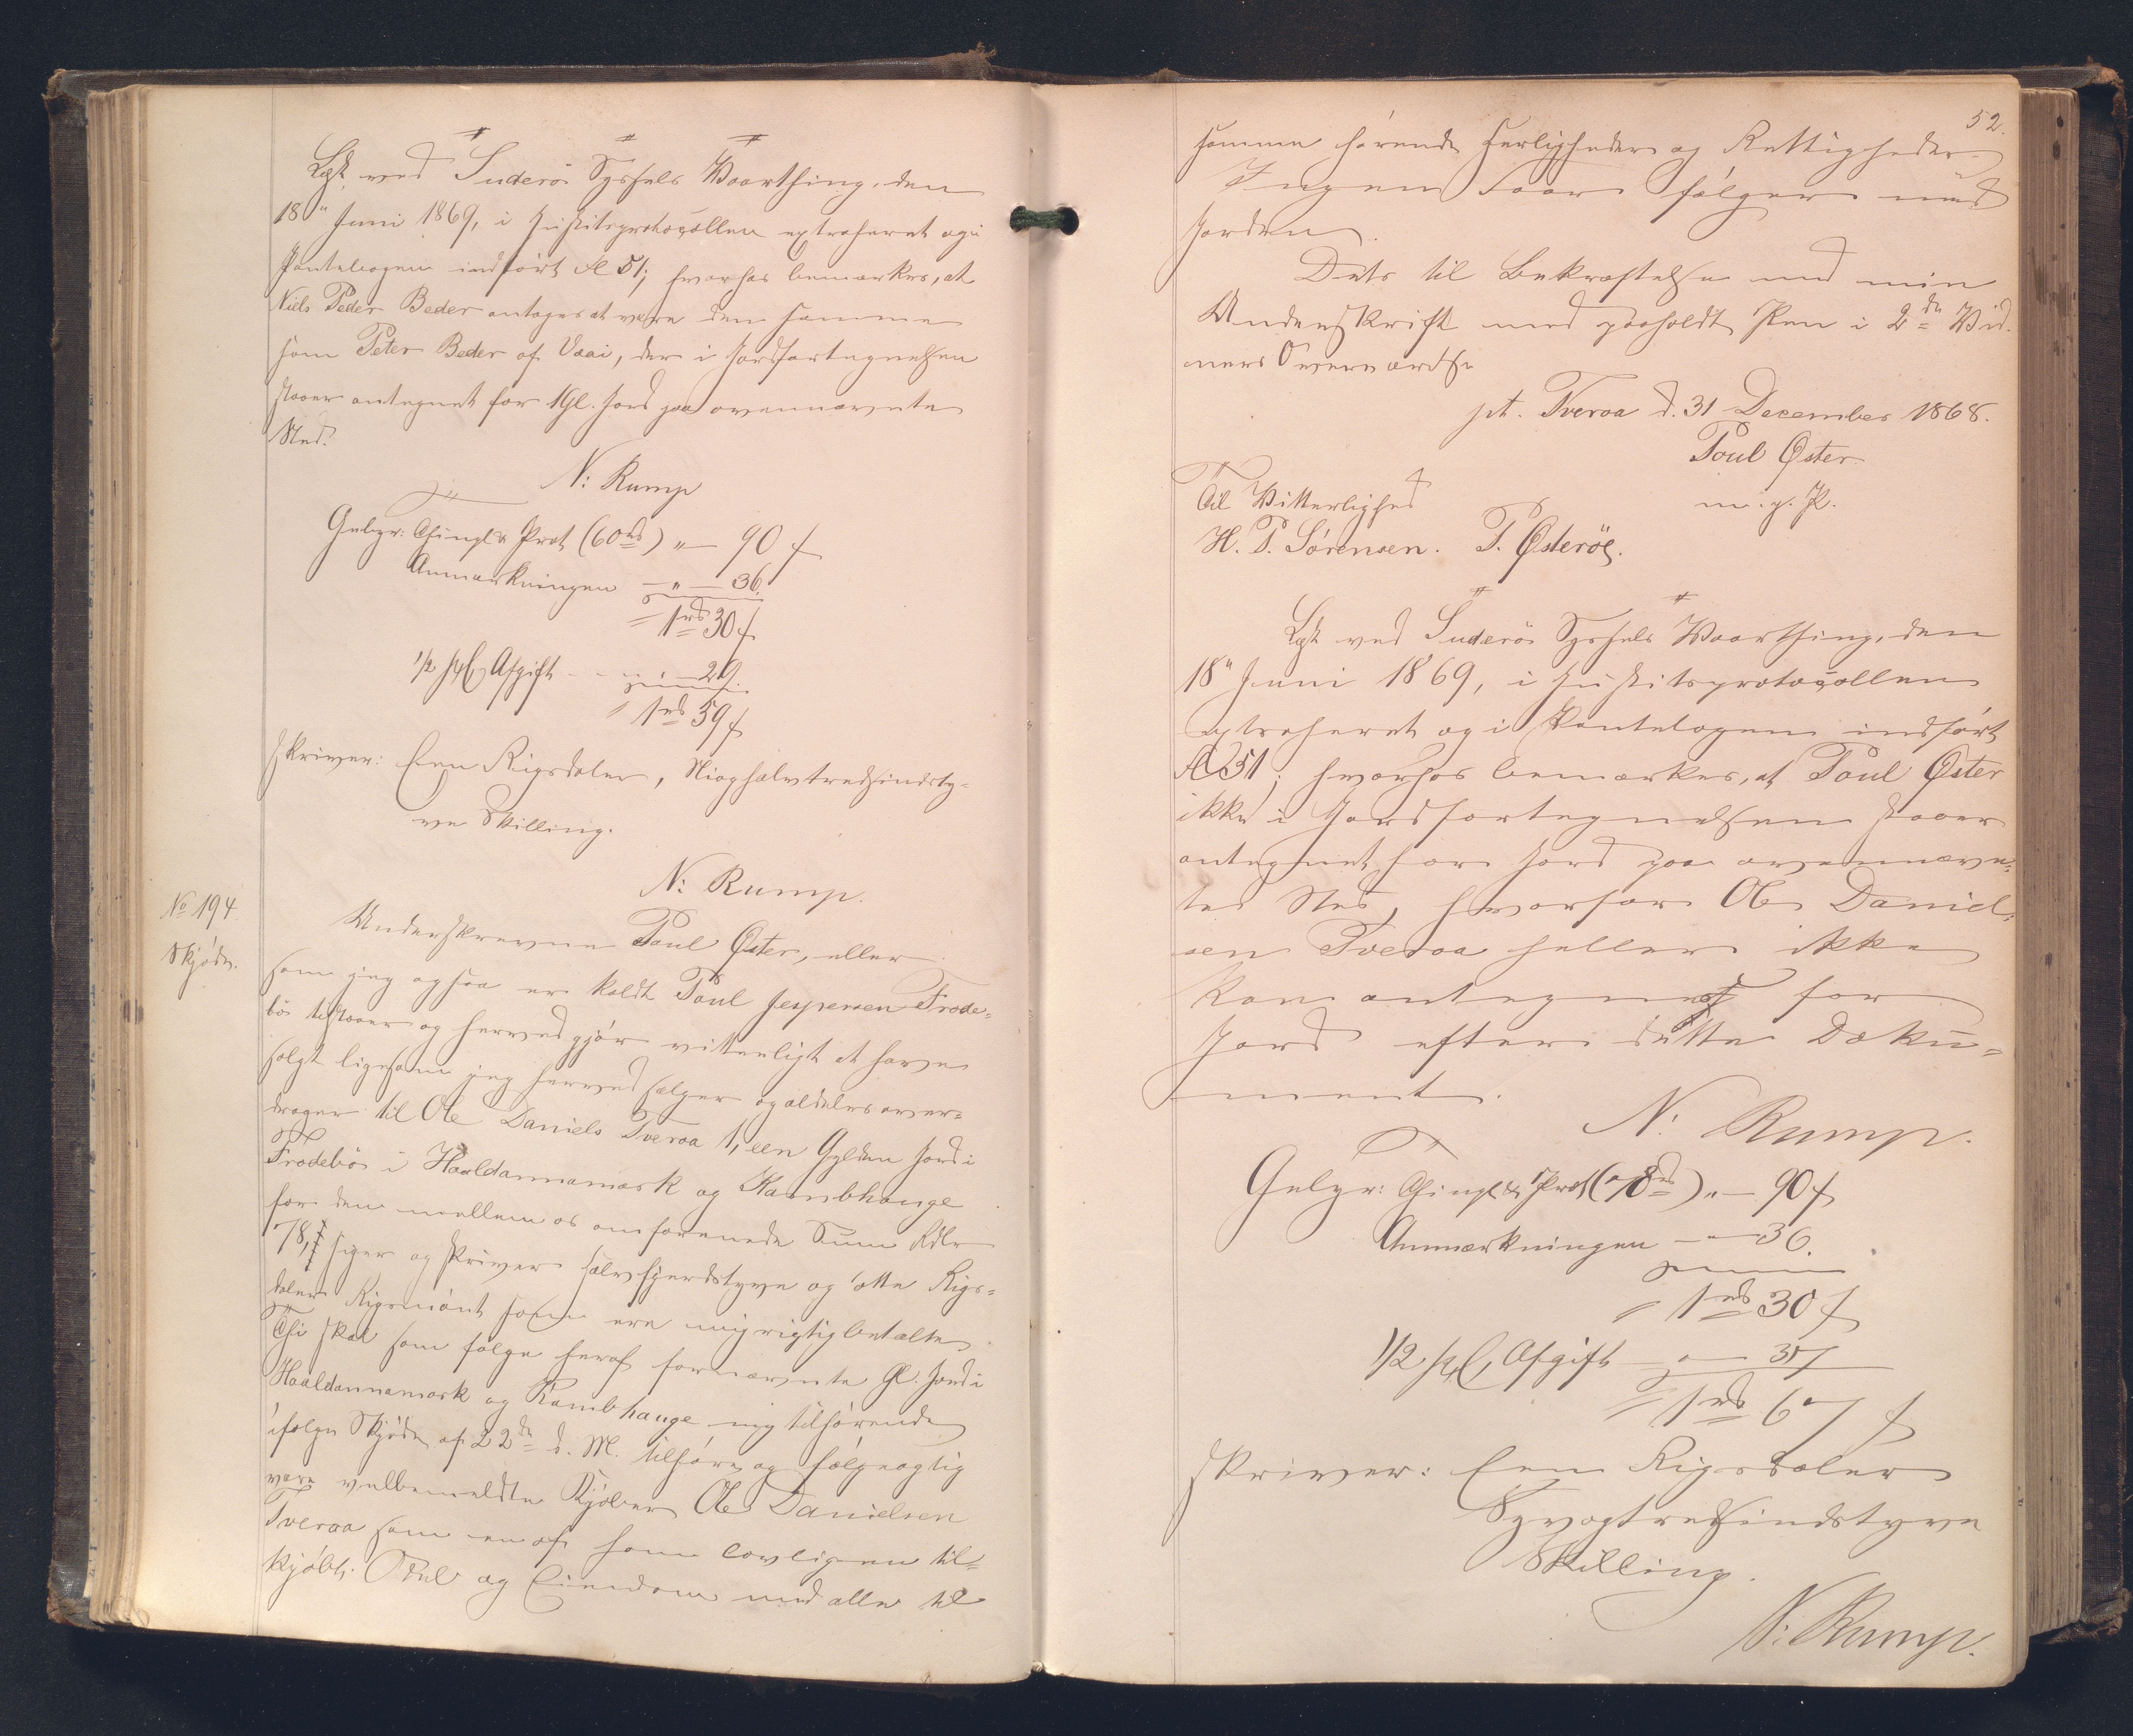 Læst ved Suderö Syssels Vaarthing, den
18" Juni 1869, i Justitsprotocollen extraheret og i
Pantebogen indført fol 51; hvorhos bemærkes, at
Niels Peder Beder antages at være den samme
som Peter Beder af Vaai, der i Jordfortegnelsen
staaer antegnet for 1 Gl. Jord paa ovennævnte
Sted.
N: Rump
Gebyr: Thingl & Prot (60 rd) " — 90 f
Anmærkningen — " — 36.
1 rd 30 f
1/2 pCt Afgift - - " — 29.
1 rd 59 f
skriver: Een Rigsdaler, Nioghalvtredsindsty-
ve Skilling.
N: Rump.
No 194.
Skjøde.
Underskrevne Poul Øster, eller
som jeg ogsaa er kaldt Poul Jespersen Frode-
bø tilstaaer og herved gjør vitterligt at have
solgt ligesom jeg herved sælger og aldeles over-
drager til Ole Daniels Tveraa 1, een Gylden Jord i
Frodebø i Haaldannamark og Kambhauge
for den mellem os omforenede Sum Rdlr
78, siger og skriver halvfjerdstyve og otte Rigs-
daler Rigsmønt som ere mig rigtig betalte
Thi skal som følge heraf fornævnte Gl. Jord i
Haaldannamark og Kambhauge mig tilhørende
ifølge Skjøde af 22de d. M. tilhøre og følgeagtig
være velbemeldte Kjøber Ole Danielsen
Tveraa som en af ham lovligen til-
kjøbt Odel og Eiendom med alle til
52.
samme hørende Herligheder og Rettigheder.
Ingen Faar følger med
Jorden.
Dets til Bekræftelse med min
Underskrift med paaholdt Pen i 2de Vid-
ners Overværelse
pt. Tveraa d. 31 December 1868.
Poul Øster
m. p. P.
Til Vitterlighed
H. P. Sörensen. P. Østerøe.
Læst ved Suderö Syssels Vaarthing, den
18" Juni 1869, i Justitsprotocollen
extraheret og i Pantebogen indført
fol 51; hvorhos bemærkes, at Poul Øster
ikke i Jordfortegnelsen staaer
antegnet for Jord paa ovennævn-
te Sted, hvorfor Ole Daniel-
sen Tveraa heller ikke
kan antegnes for
Jord efter dette Doku-
ment.
N: Rump.
Gebyr: Thingl & Prot (78 rd) " — 90 f
Anmærkningen — " — 36.
1 rd 30 f
1/2 pCt Afgift — " — 37
1 rd 67 f
skriver: Een Rigsdaler
Syvogtredsindstyve
Skilling.
N: Rump.